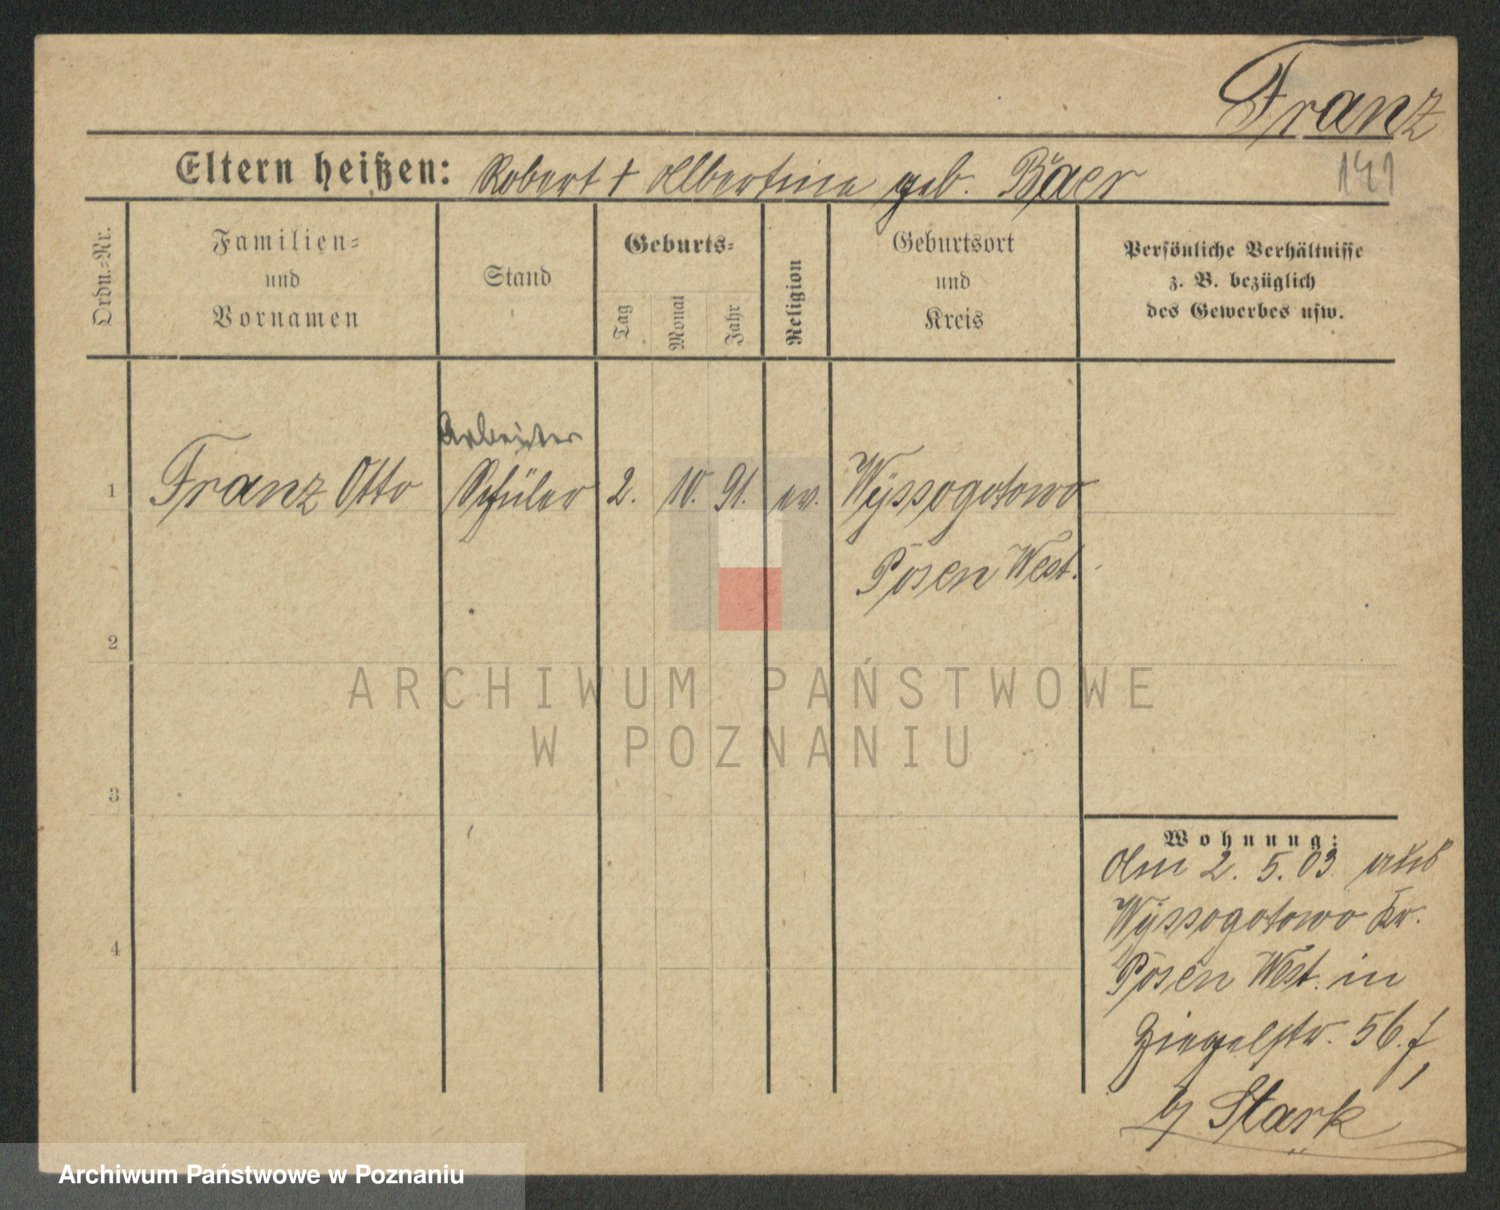 Franz
141
Eltern heißen: Robert † Albertine geb. Baer
Ordn.-Nr.
Familien-
und
Vornamen
Stand
Geburts-
Tag
Monat
Jahr
Religion
Geburtsort
und
Kreis
Persönliche Verhältnisse
z. B. bezüglich
des Gewerbes usw.
Arbeiter
1 Franz Otto Schüler 2. 10. 91. ev. Wyssogotowo
Posen West.
2
ARCHIWUM PAŃSTWOWE
W POZNANIU
3
4
Wohnung:
Am 2. 5. 03 aus
Wyssogotowo Kr.
Posen West. in
Ziegelstr. 56.f,
b/ Stark
Archiwum Państwowe w Poznaniu